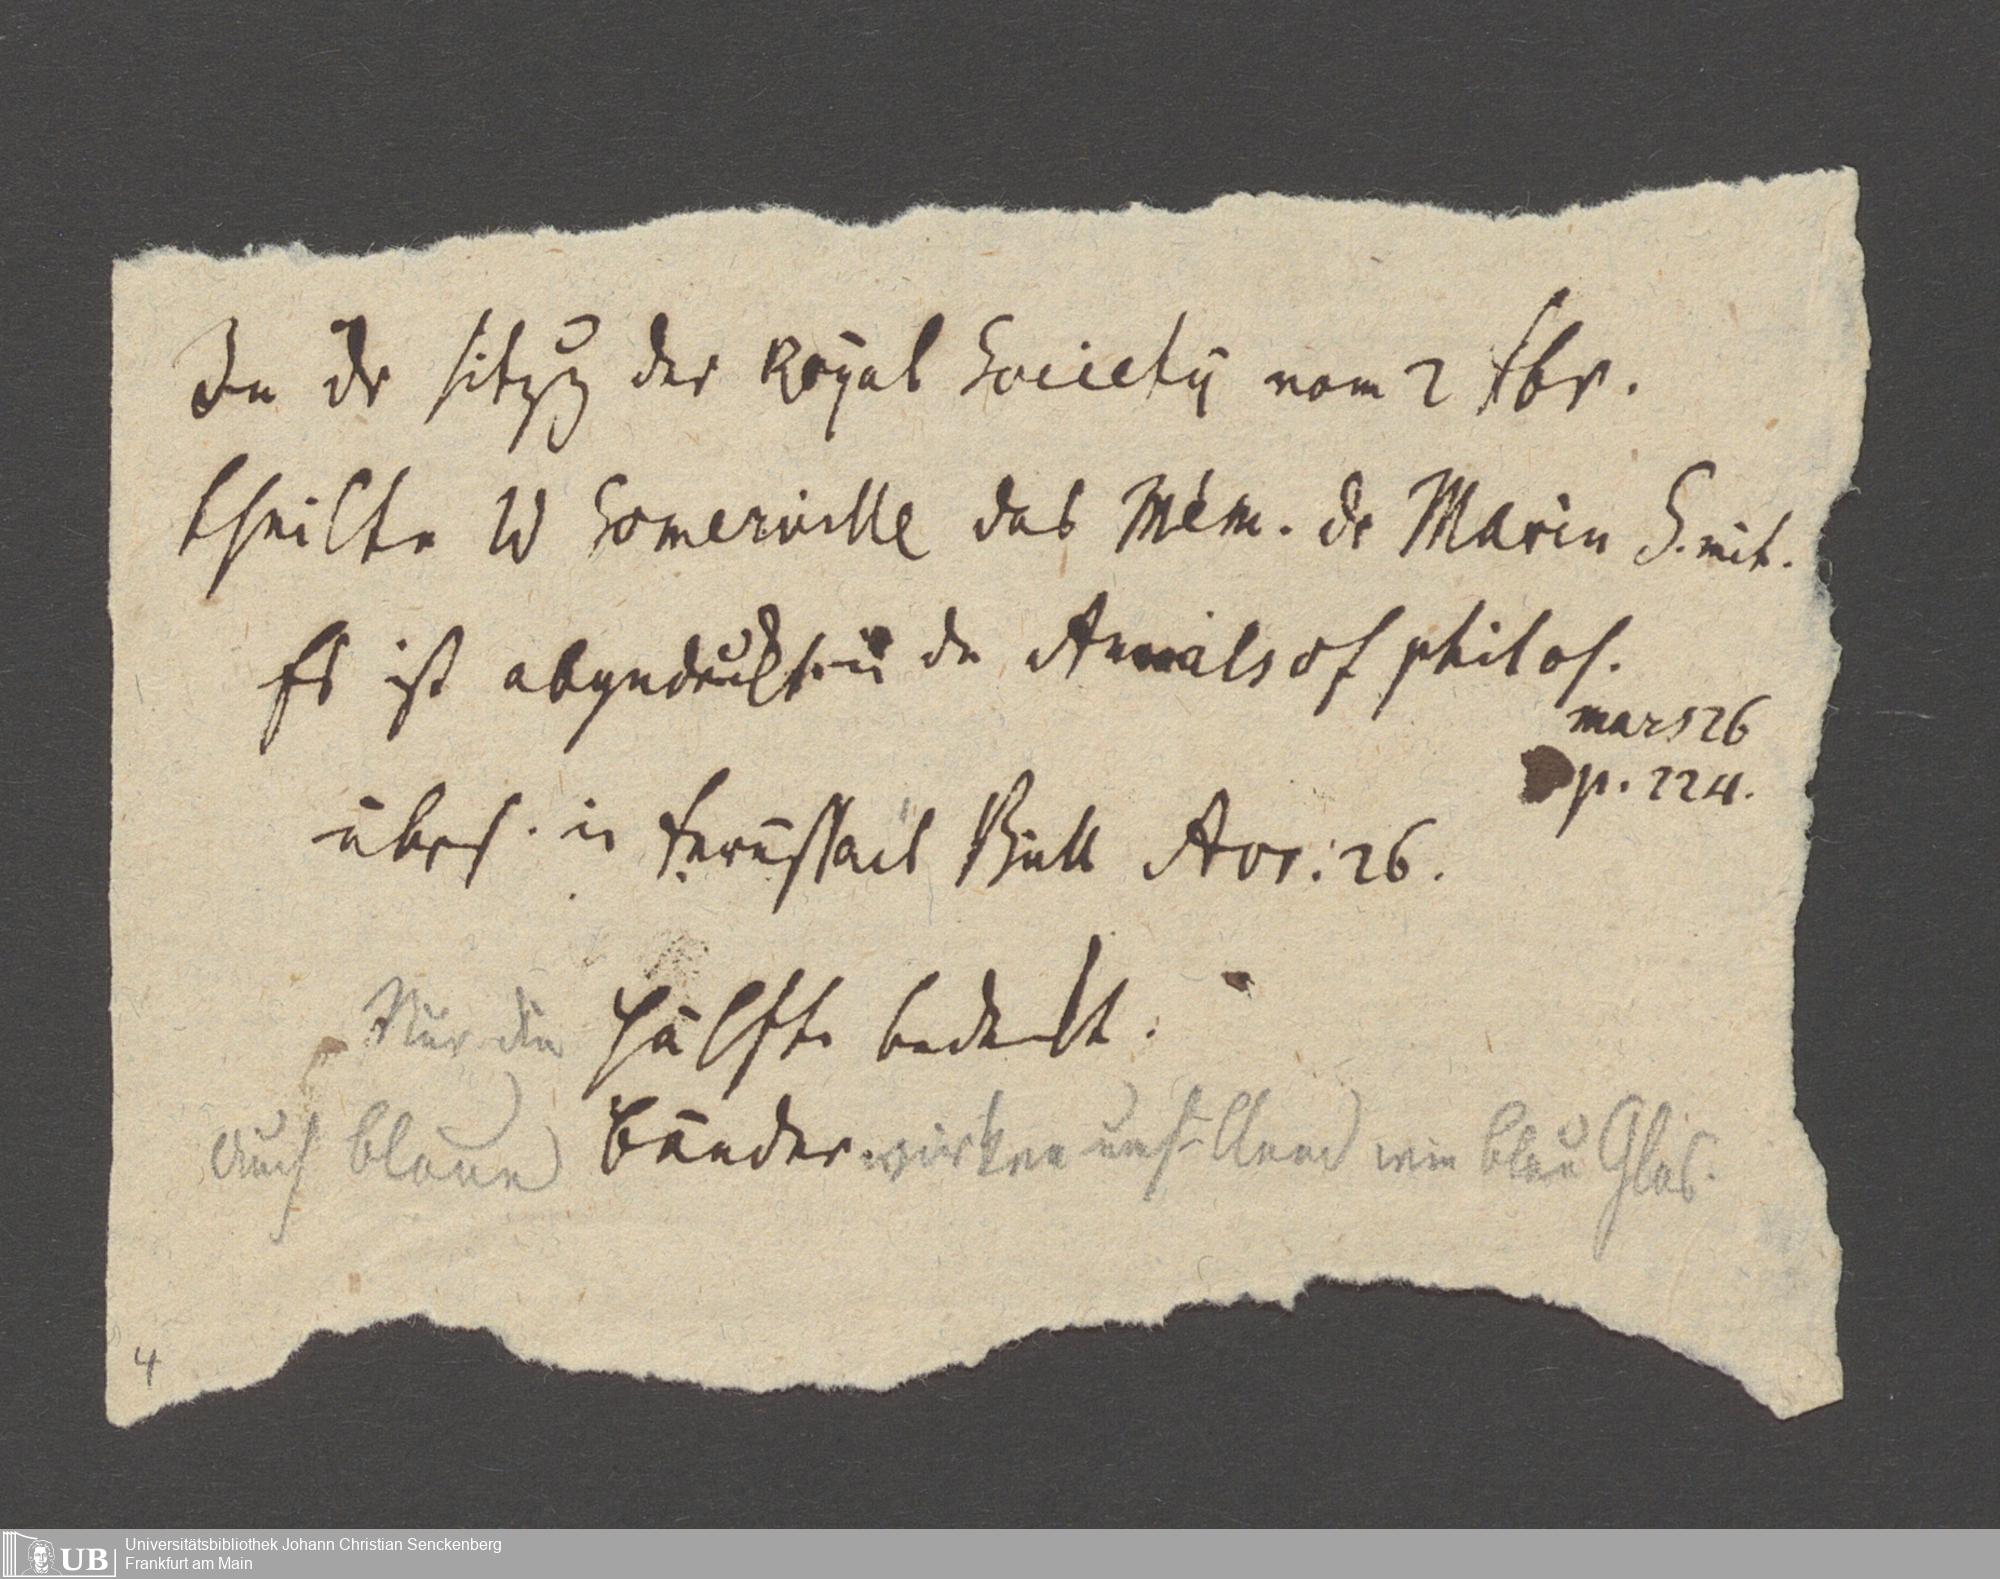 In dr Sitzg der Royal Society vom 2 Fbr.
theilte W Somerville das Mém. dr Marin S. mit.
Es ist abgedruckt in de Annals of philos.
mars 26
p. 224.
übers. in Ferussacs Bull Avr: 26.
Nur die Hälfte bedeckt.
Auch blaue Bänder wirken wie blau Glas.
4
UB
Universitätsbibliothek Johann Christian Senckenberg
Frankfurt am Main